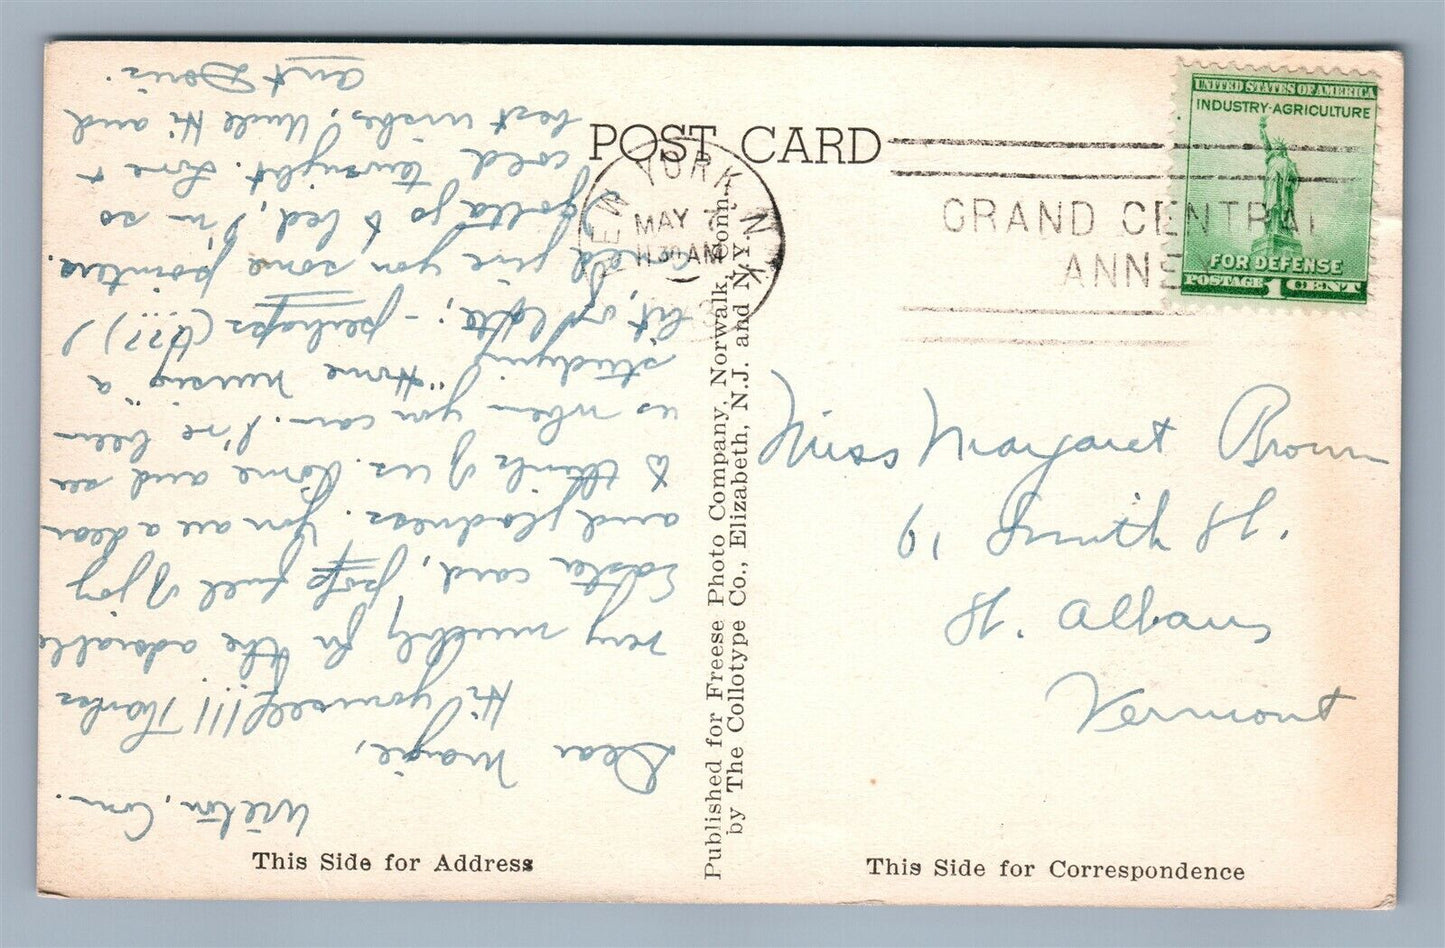 POST CARD
NEW YORK, N.Y.
MAY 7
11 30 AM
GRAND CENTRAL
ANNEX
UNITED STATES OF AMERICA
INDUSTRY-AGRICULTURE
FOR DEFENSE
POSTAGE 1 CENT
Miss Margaret Brown
61 Smith St.
St. Albans
Vermont
This Side for Correspondence
This Side for Address
Published for Freese Photo Company, Norwalk, Conn.
by The Collotype Co., Elizabeth, N.J. and N.Y.
Wilton, Conn.
Dear Margie,
Hi yourself!!! Thanks
very muchly for the adorable
Easter card, full of joy
and gladness. You are a dear
to think of us. Come and see
us when you can. I've been
studying "Home nursing" a
bit, of late; - perhaps (???) I
could give you some pointers.
I gotta go to bed, I'm so
cold tonight. Love +
best wishes, Uncle Hi and
Aunt Doris.